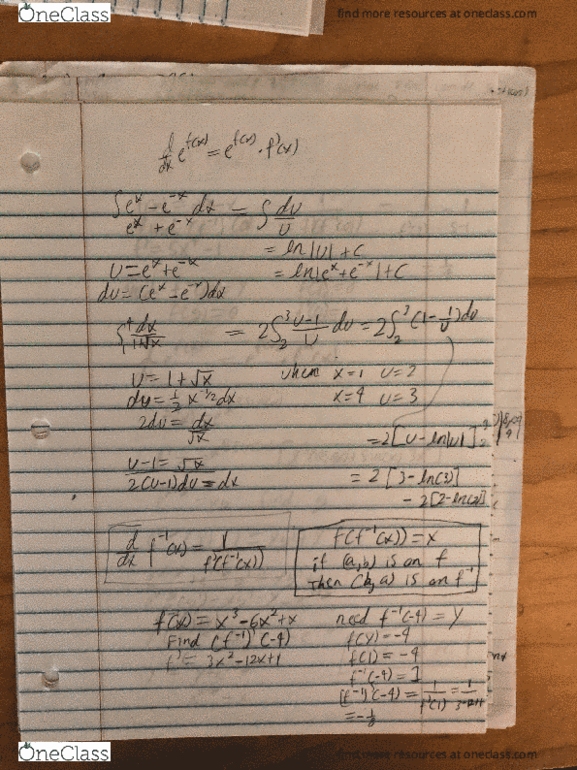 OneClass
find more resources at oneclass.com
d/dx e^f(x) = e^f(x) · f'(x)
∫ (e^x - e^-x)/(e^x + e^-x) dx = ∫ du/u
= ln|u| + C
u = e^x + e^-x = ln|e^x + e^-x| + C
du = (e^x - e^-x)dx
∫₁⁴ dx/(1+√x) = 2∫₂³ (u-1)/u du = 2∫₂³ (1 - 1/u) du
u = 1 + √x when x=1 u=2
du = 1/2 x^-1/2 dx x=4 u=3
2du = dx/√x
= 2[u - ln|u|]
u-1 = √x
2(u-1)du = dx = 2[3 - ln(3)]
- 2[2 - ln(2)]
d/dx f⁻¹(x) = 1/f'(f⁻¹(x))
f(f⁻¹(x)) = x
if (a,b) is on f
then (b,a) is on f⁻¹
f(x) = x³ - 6x² + x need f⁻¹(-4) = y
Find (f⁻¹)'(-4) f(y) = -4
f' = 3x² - 12x + 1 f(1) = -4
f⁻¹(-4) = 1
(f⁻¹)'(-4) = 1/f'(1) = 1/(3-12+1)
= -1/8
OneClass
find more resources at oneclass.com